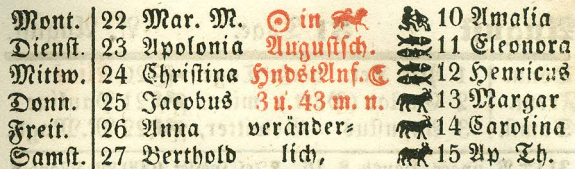 Mont. 22 Mar. M. ☉ in 10 Amalia
Dienst. 23 Apolonia Augustsch. 11 Eleonora
Mittw. 24 Christina HndstAnf. ☾ 12 Henricus
Donn. 25 Jacobus 3 u. 43 m. n. 13 Margar
Freit. 26 Anna veränder- 14 Carolina
Samst. 27 Berthold lich, 15 Ap Th.